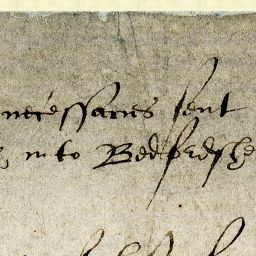 necessaries sent
into Bedfordsh